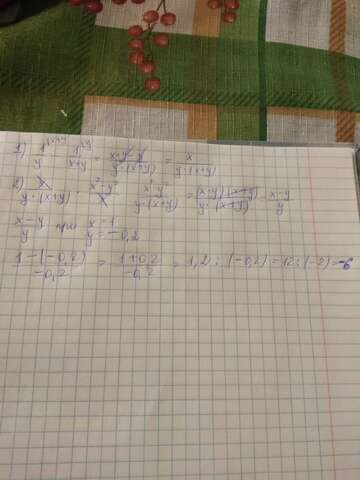 1) 1^{\x+y}/y - 1^{\y}/(x+y) = (x+y-y)/(y·(x+y)) = x/(y·(x+y))
2) x/(y·(x+y)) · (x²-y²)/x = (x²-y²)/(y·(x+y)) = ((x-y)(x+y))/(y·(x+y)) = (x-y)/y
(x-y)/y при x=1 y=-0,2
(1-(-0,2))/(-0,2) = (1+0,2)/(-0,2) = 1,2 : (-0,2) = 12 : (-2) = -6